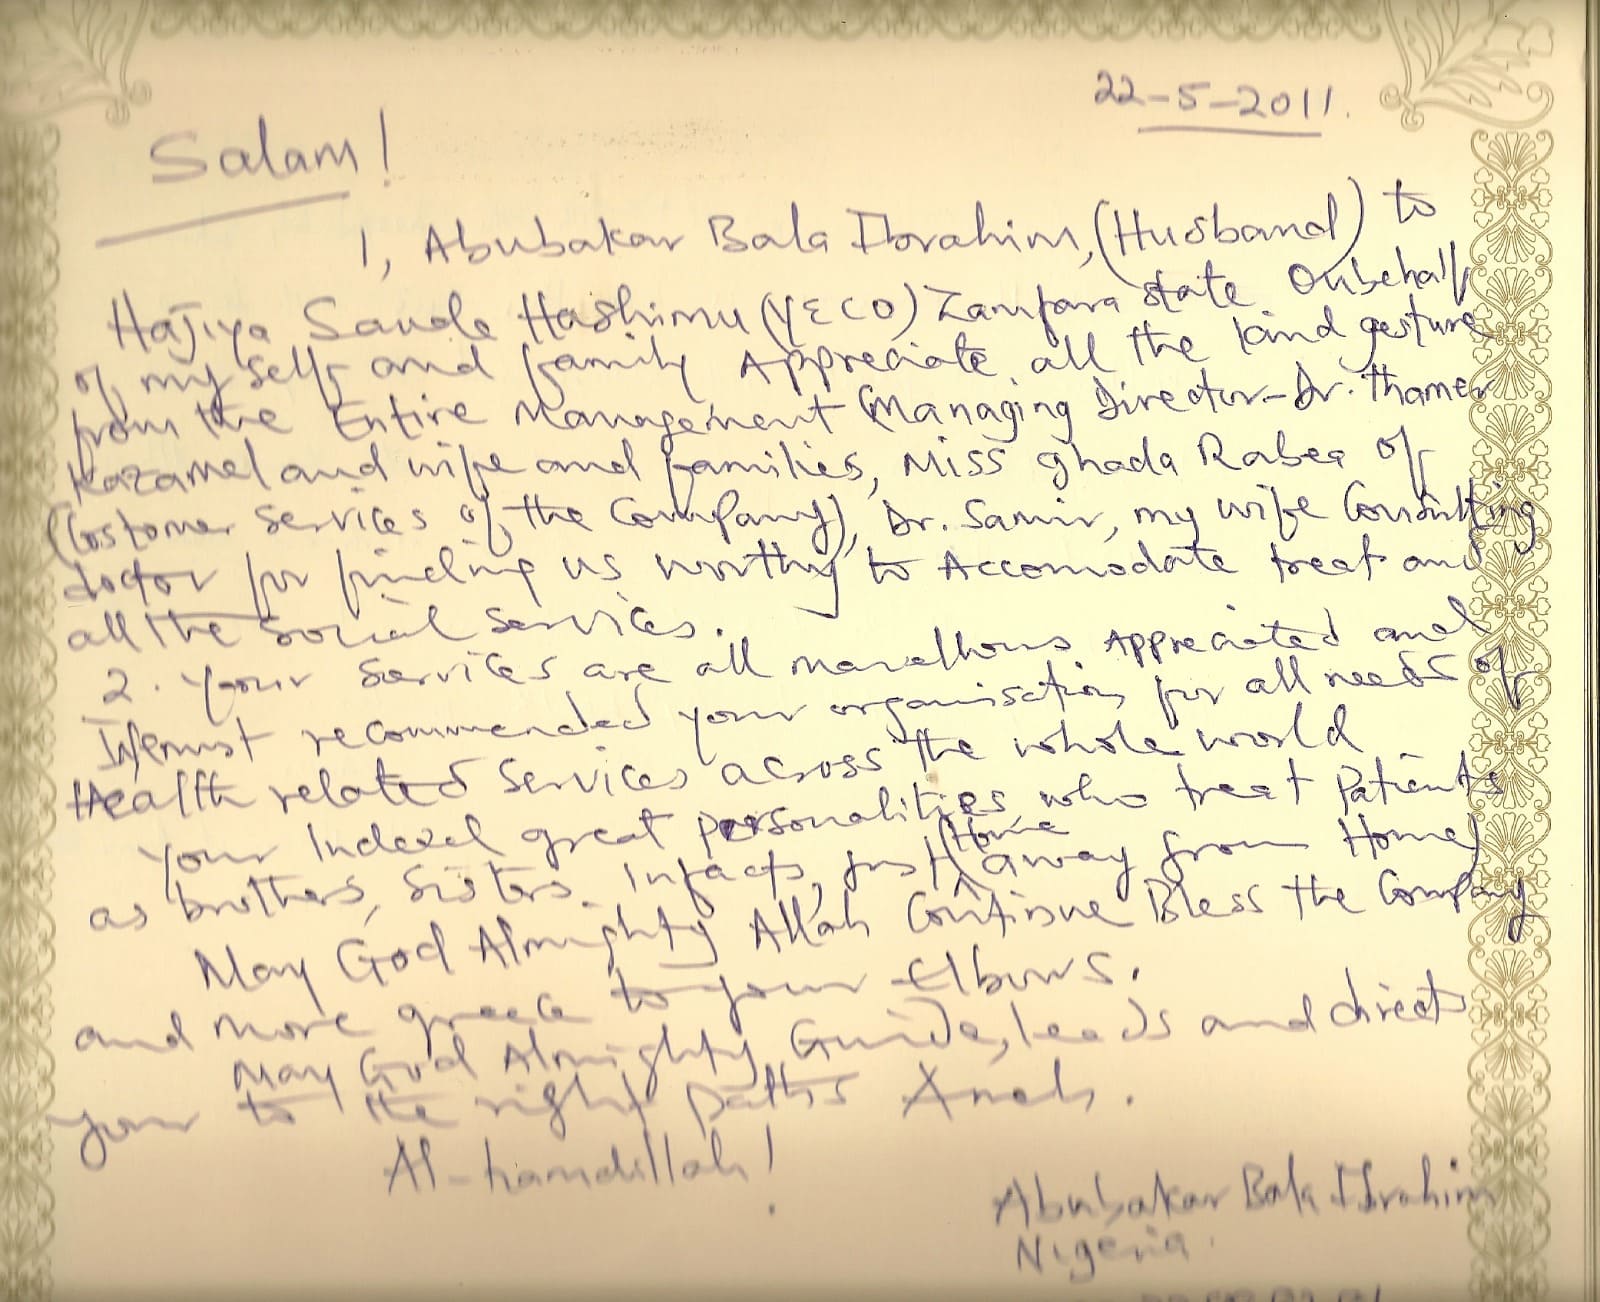 22-5-2011.
Salam!
1, Abubakar Bala Ibrahim, (Husband) to
Hajiya Saude Hashimu (YECO) Zamfara state Onbehalf
of my self and family Appreciate all the kind gesture
from the Entire Management (Managing Director-Dr. Thamer
Kazamel and wife and families, Miss ghada Rabea of
(Costomer Services of the Company), Dr. Samir, my wife Consulting
doctor for finding us worthy to Accomodate treat and
all the social services.
2. Your Services are all marvellous Appreciated and
must recommended your organisation for all needs of
Health related services across the whole world
Your Indeed great personalities who treat Patients
as brothers, Sisters. Infacts, just Home away from Home)
May God Almighty Allah Continue Bless the Company
and more greece to your Elbows.
May God Almighty Guide, leads and directs
your to the right paths
Al-hamdillah!
Abubakar Bala Ibrahim
Nigeria.